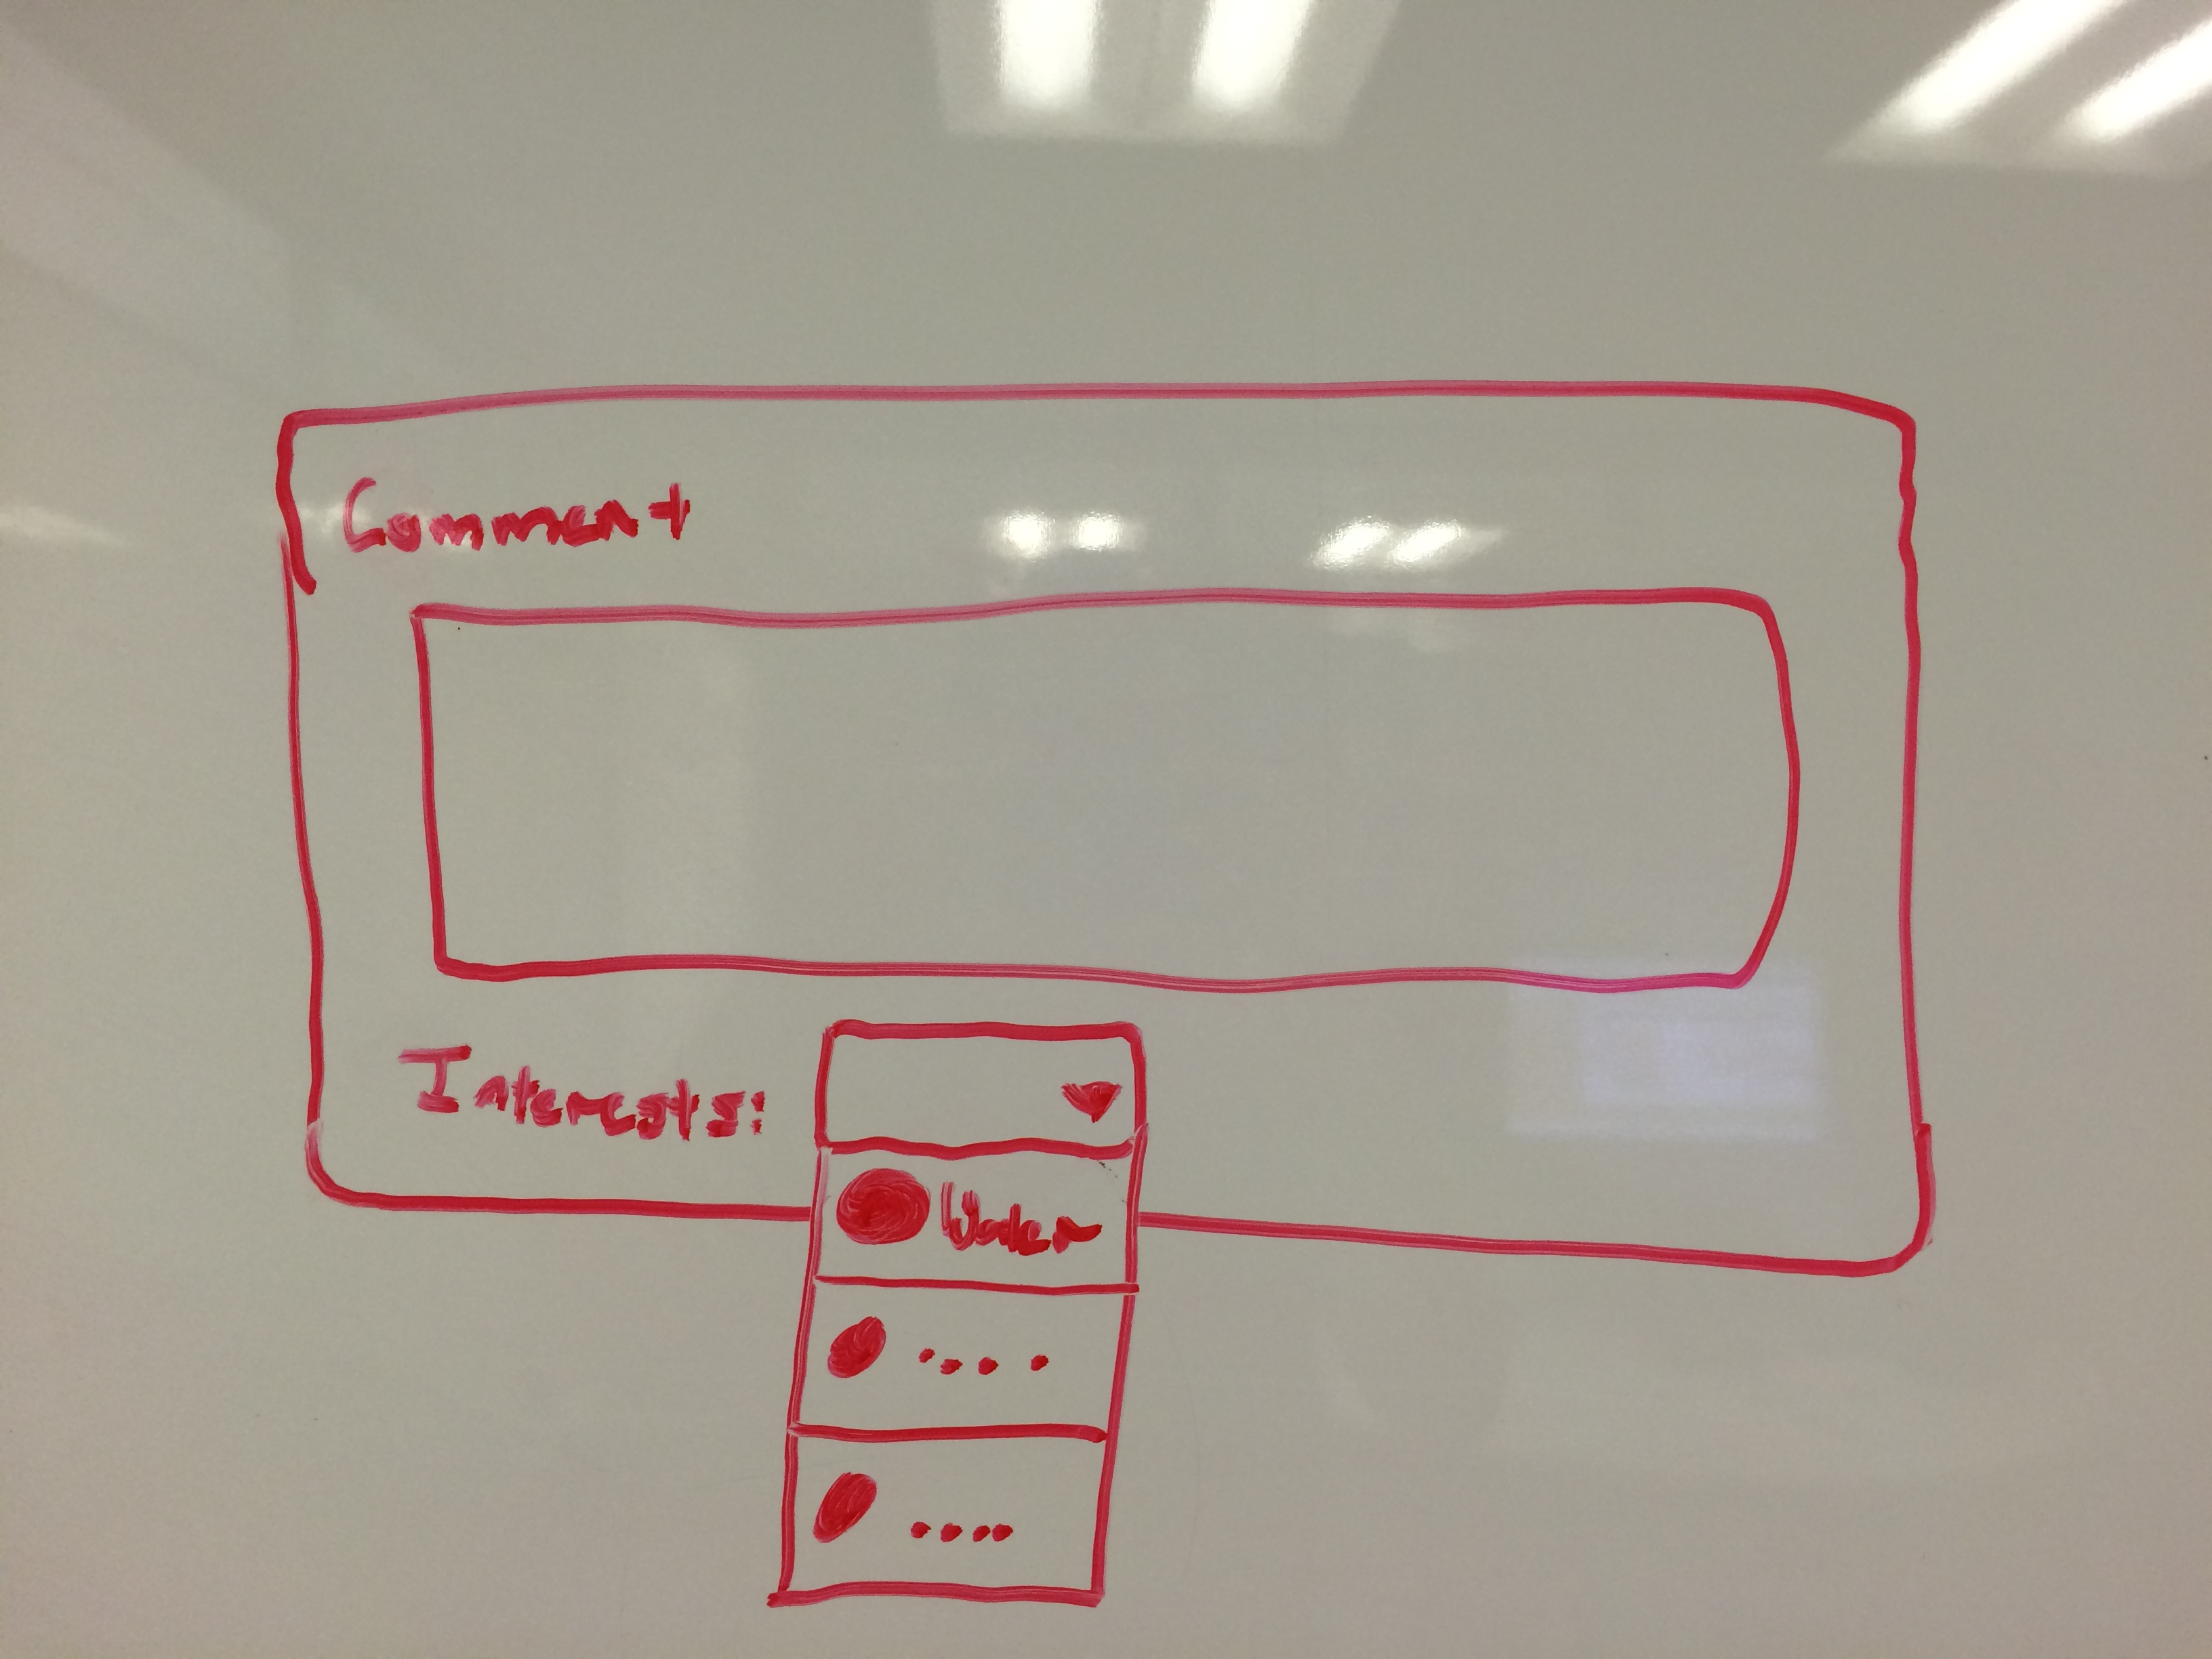 Comment
Interests:
Water
.... 
....